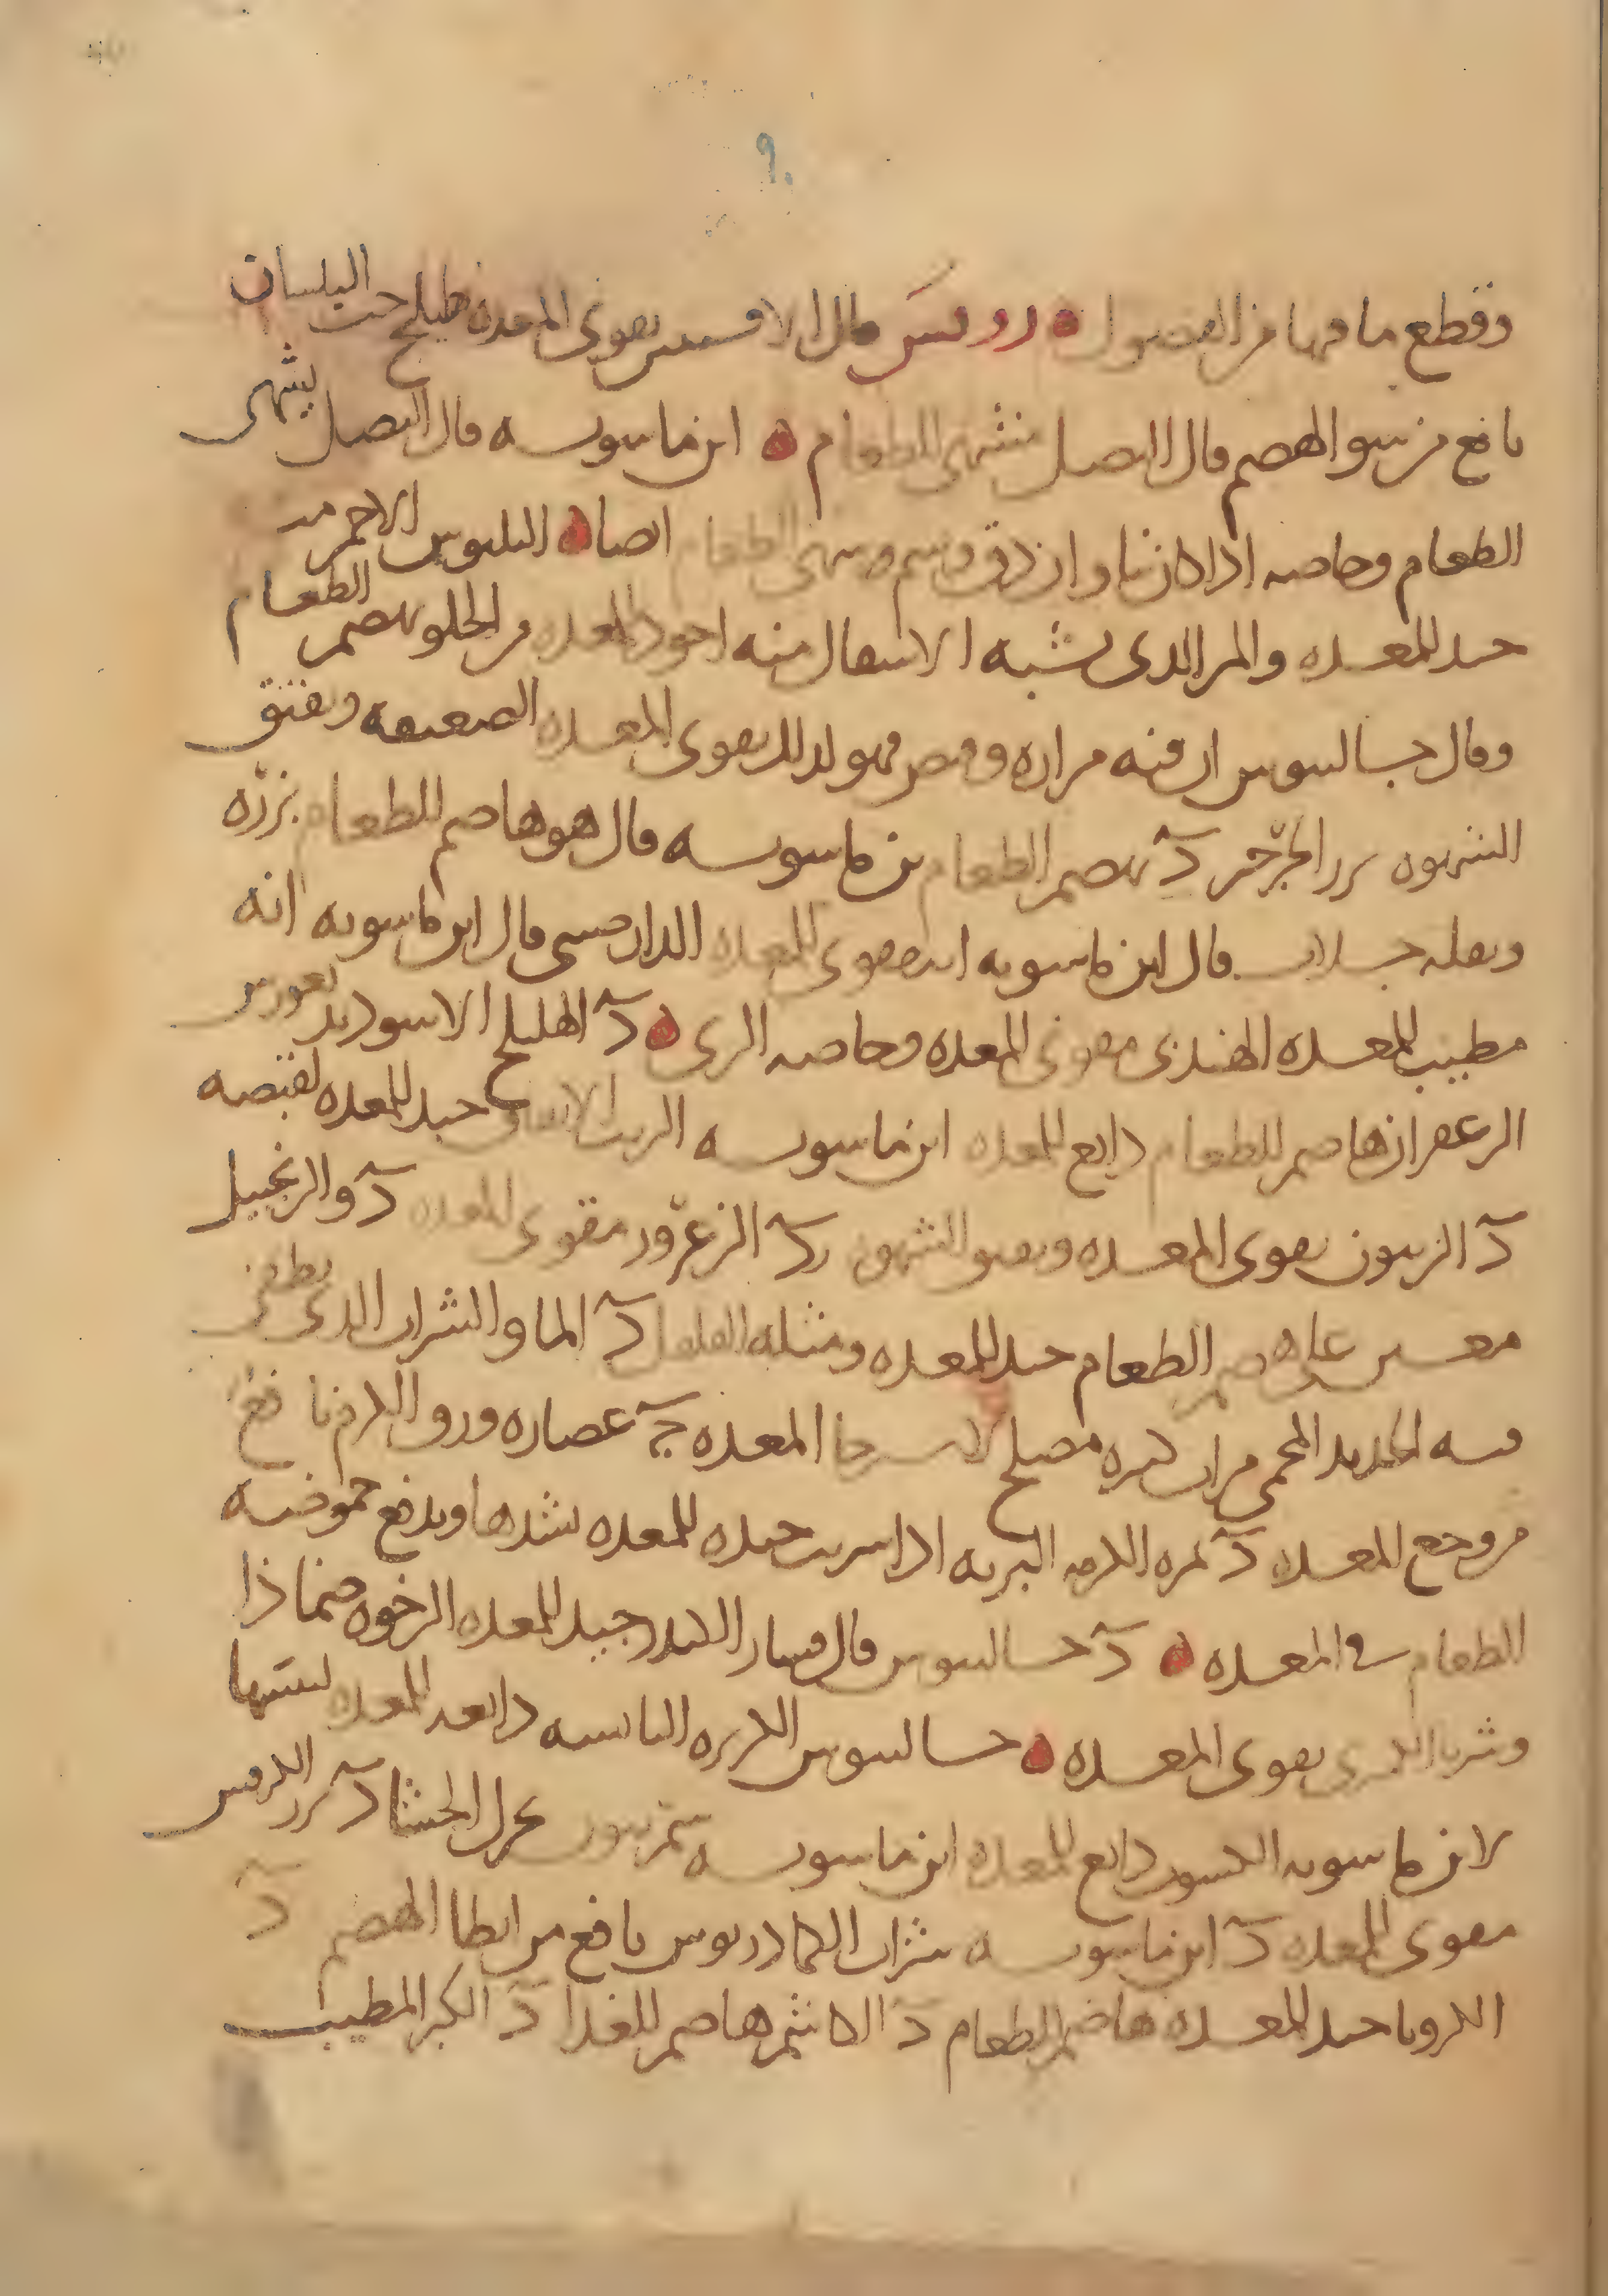 ٩٠
وقطع ما فيها من الفضول روفس قال الافسنتين يقوى المعده طبيخ حب البلسان
نافع من سو الهضم قال البصل مشهى للطعام ابن ماسويه قال البصل يشهى
الطعام وخاصه اذا كان نيا وان دق وشم وشهى الطعام ايضا البلبوس الاحمر
جيد للمعده والمر الذى يشبه الاسقال منه اجود للمعده من الحلو يهضم الطعام
وقال جالينوس ان فيه مراره وقبض فهو لذلك يقوى المعده الضعيفه ويفتق
الشهوه بزر الجرجير د يهضم الطعام بن ماسويه قال هو هاضم للطعام بزره
وبقله قال ابن ماسويه انه يقوى المعده الدارصينى قال ابن ماسويه انه
مطيب للمعده الهندى مقوى للمعده وخاصه البرى د الهليلج الاسود
الزعفران هاضم للطعام دابغ للمعده ابن ماسويه الزيت الانفاق جيد للمعده لقبضه
د الزيتون يقوى المعده الشهوه د الزعرور مقوى للمعده د والزنجبيل
معين على هضم الطعام جيد للمعده ومثله الفلفل د الما والشراب الذى يطفى
فيه الحديد المحمى مرات كثيره مصلح لاسترخا المعده ج عصاره ورق الكرم نافع
من وجع المعده د ثمره الكرمه البريه اذا شربت جيده للمعده تشدها ويدفع حموضه
الطعام فى المعده د جالينوس قال قشار الكندر جيد للمعده الرخوه ضمادا
وشربا يقوى المعده جالينوس الكزبره اليابسه دابغه للمعده
لابن ماسويه الكمون دابغ للمعده ابن ماسويه يحرك الجشا د بزر الكرفس
مقوى للمعده د ابن ماسويه شراب الكمادريوس نافع من ابطا الهضم د
الكرويا جيد للمعده هاضم للطعام د الكاشم هاضم للغذا د الكبر المطيب